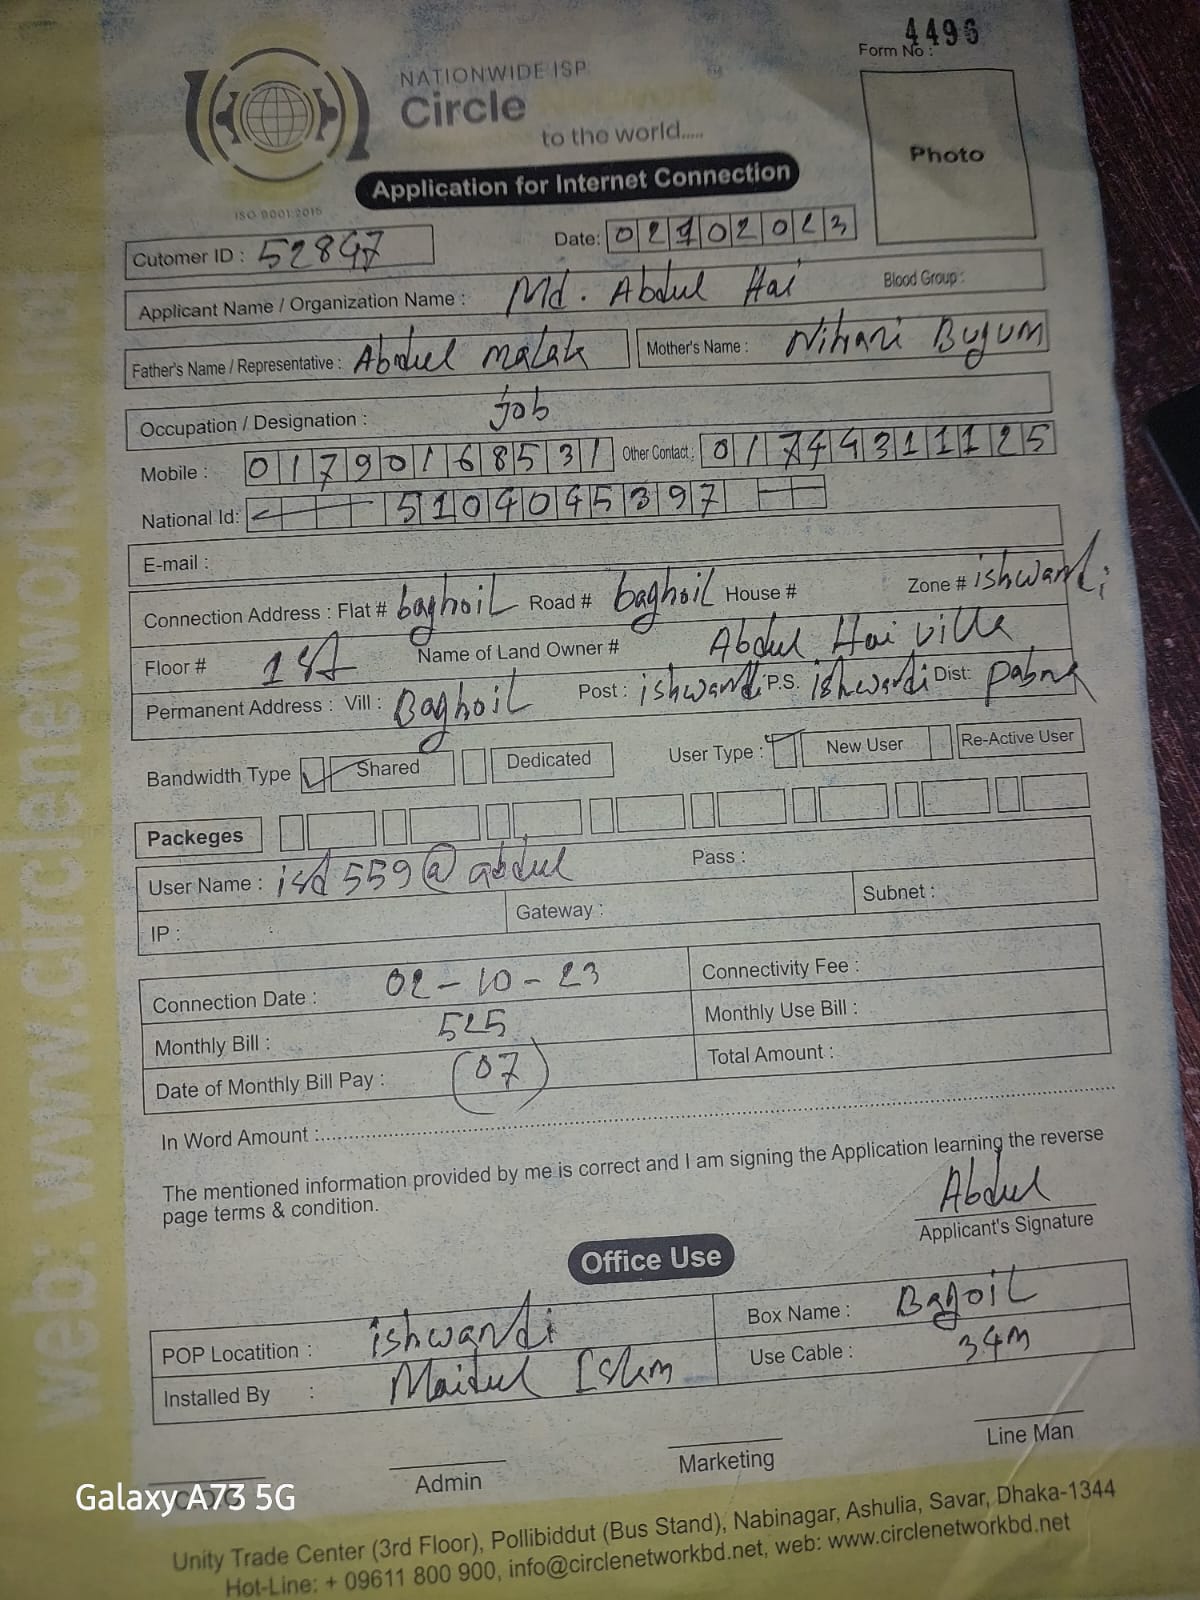 4496
Form No :
NATIONWIDE ISP
Circle Network
to the world.....
ISO 9001:2015
Application for Internet Connection
Photo
Cutomer ID : 52847
Date: 02102023
Applicant Name / Organization Name : Md. Abdul Hai Blood Group :
Father's Name / Representative : Abdul malak Mother's Name : Nihari Bugum
Occupation / Designation : Job
Mobile : 01790168531 Other Contact :
National Id: 5104045397
E-mail :
Connection Address : Flat # baghoil Road # baghoil House # Zone # ishwardi
Floor # 1st Name of Land Owner # Abdul Hai ville
Permanent Address : Vill : Baghoil Post : ishwardi P.S. ishwardi Dist: pabna
Bandwidth Type Shared Dedicated User Type : New User Re-Active User
Packeges
User Name : isd559@abdul Pass :
IP : Gateway : Subnet :
Connection Date : 02-10-23 Connectivity Fee :
Monthly Bill : 525 Monthly Use Bill :
Date of Monthly Bill Pay : 07 Total Amount :
In Word Amount :
The mentioned information provided by me is correct and I am signing the Application learning the reverse
page terms & condition.
Abdul
Applicant's Signature
Office Use
POP Locatition : ishwardi Box Name : Bagoil
Installed By : Maidul Islam Use Cable : 34m
Admin Marketing Line Man
Galaxy A73 5G
Unity Trade Center (3rd Floor), Pollibiddut (Bus Stand), Nabinagar, Ashulia, Savar, Dhaka-1344
Hot-Line: + 09611 800 900, info@circlenetworkbd.net, web: www.circlenetworkbd.net
web: www.circlenetworkbd.net